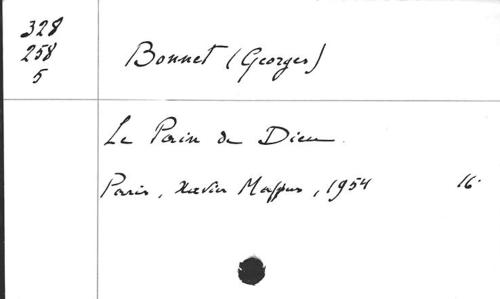 328
258
5
Bonnet (Georges)
Le Pain de Dieu.
Paris, Xavier Mappus, 1954 16°